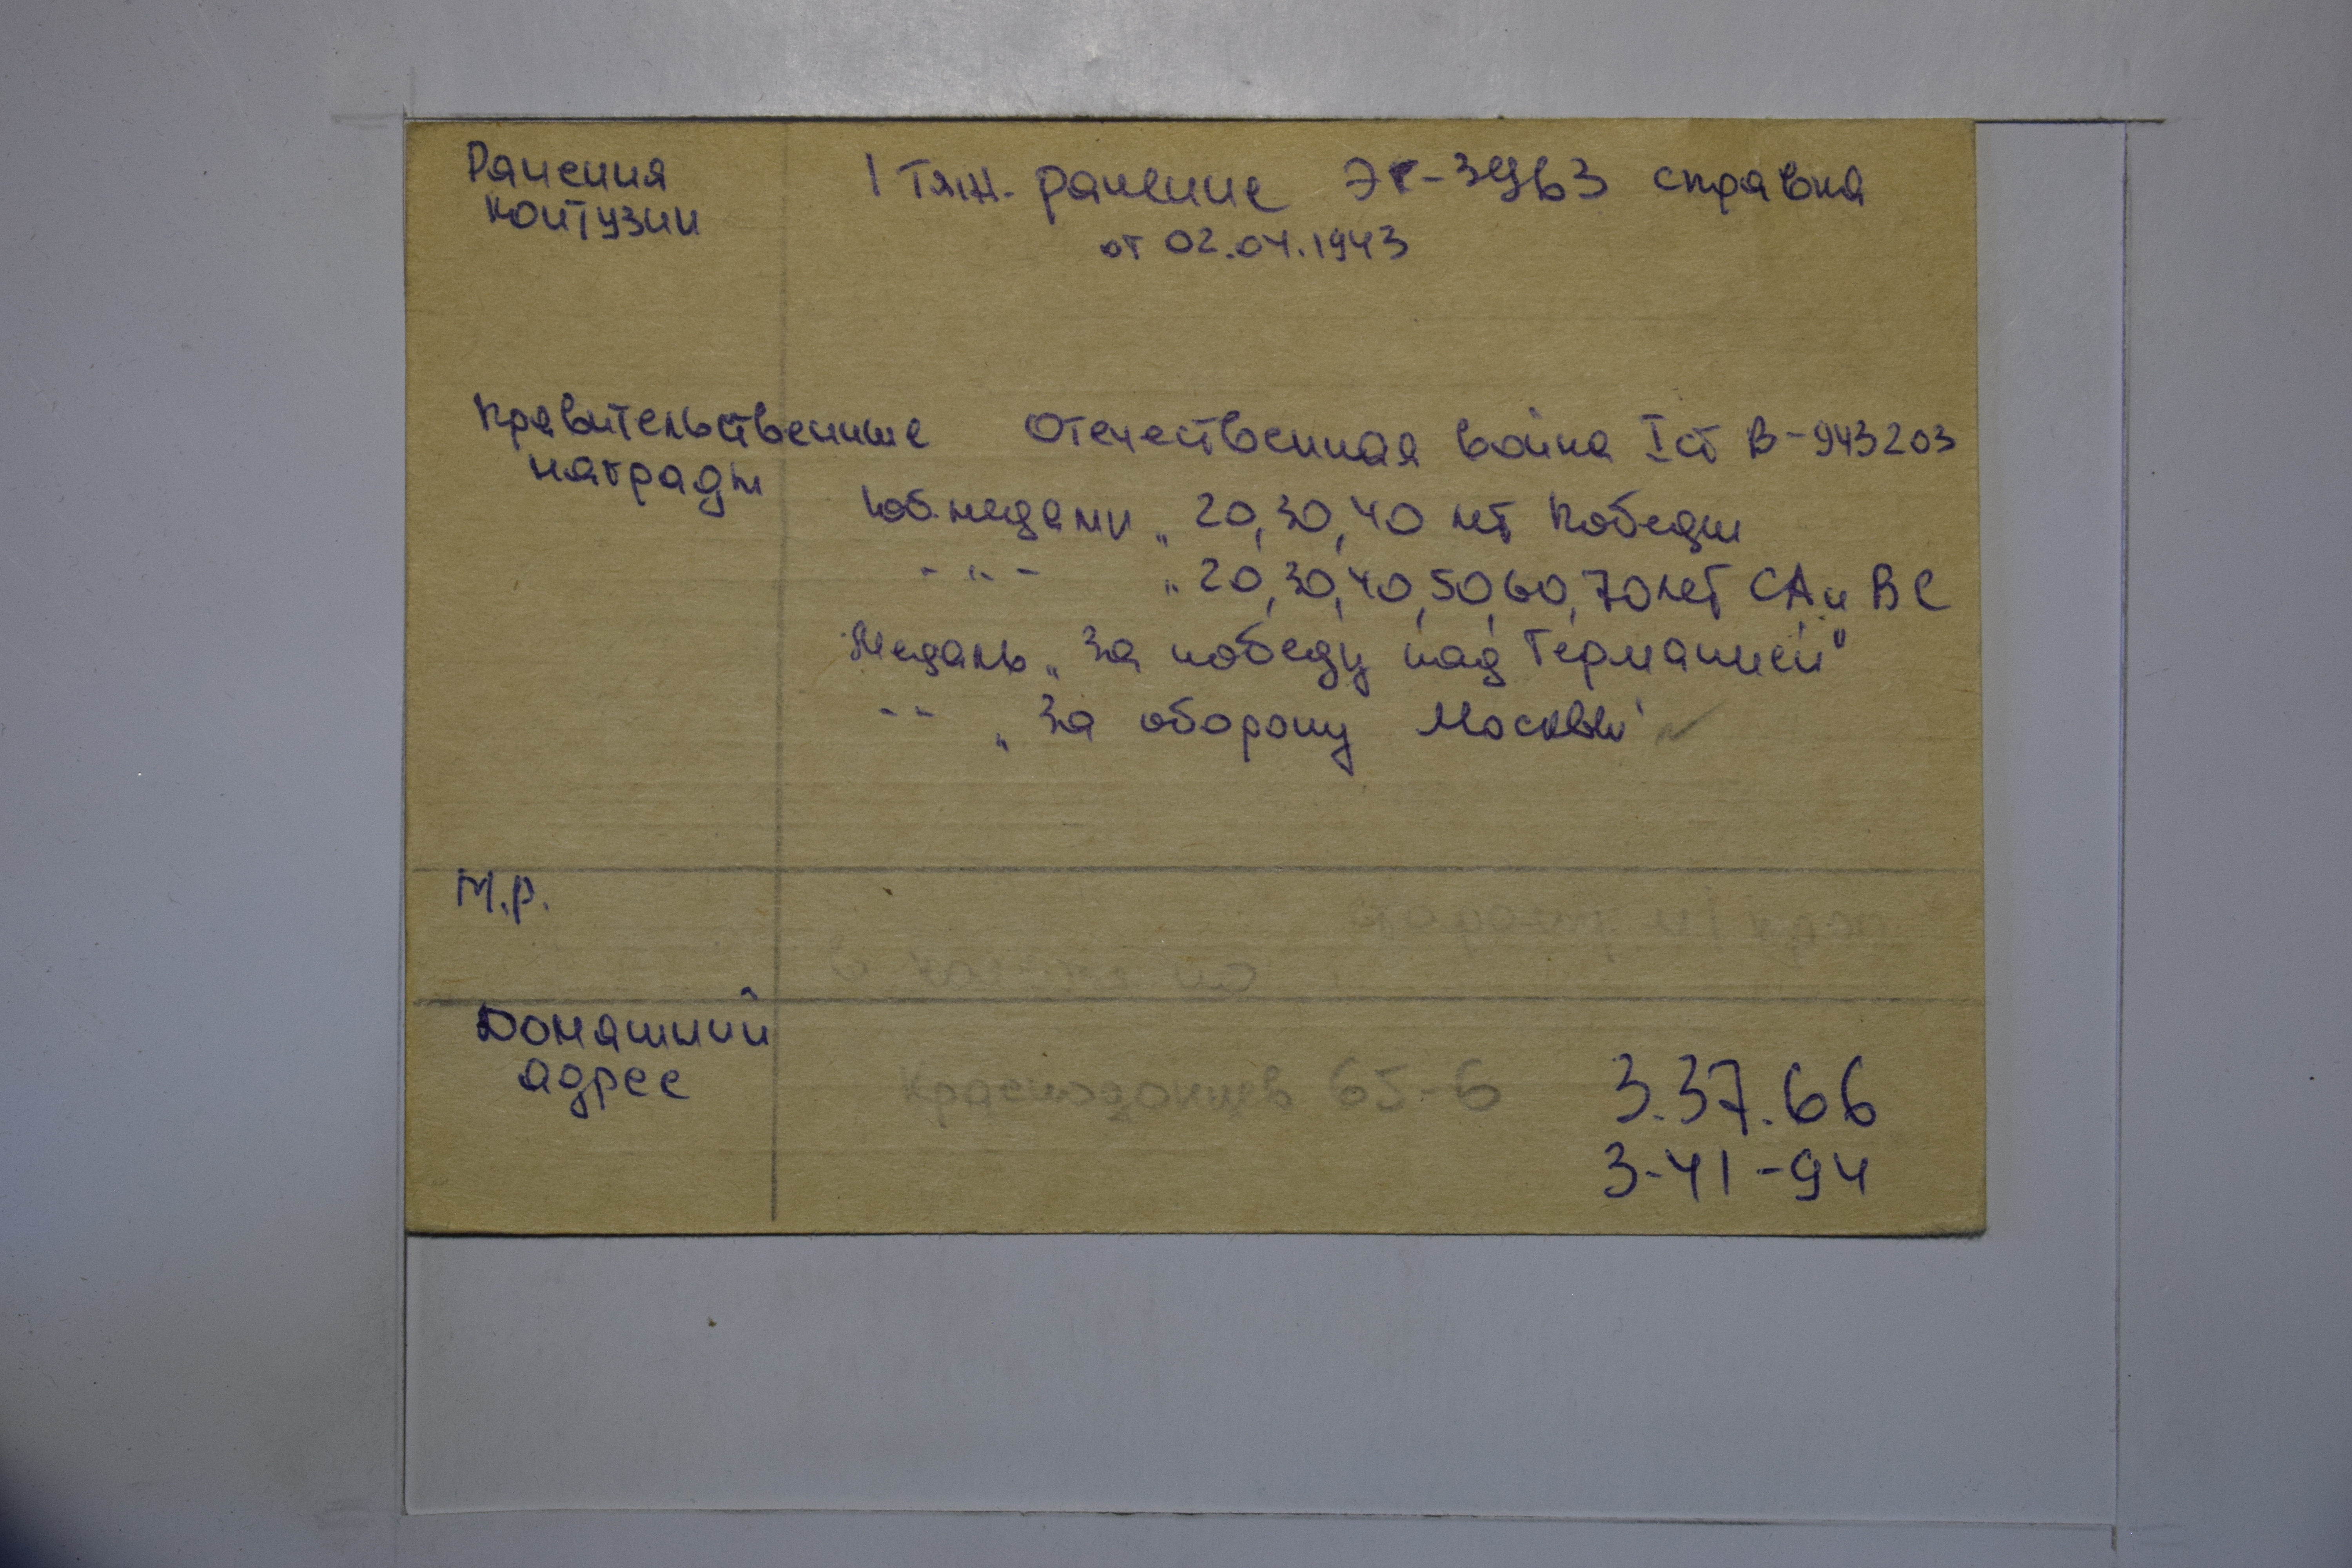 Ранения 1 тяж. ранение ЭГ-3963 справка
контузии от 02.04.1943
Правительственные Отечественная война I ст В-943203
награды
Юб.медали „20,30,40 лет Победы
-"- „20,30,40,50,60,70 лет СА и ВС
Медаль „За победу над Германией"
-- „За оборону Москвы"
М.Р.
Домашний
адрес Краснодонцев 65-6 3.37.66
3-41-94